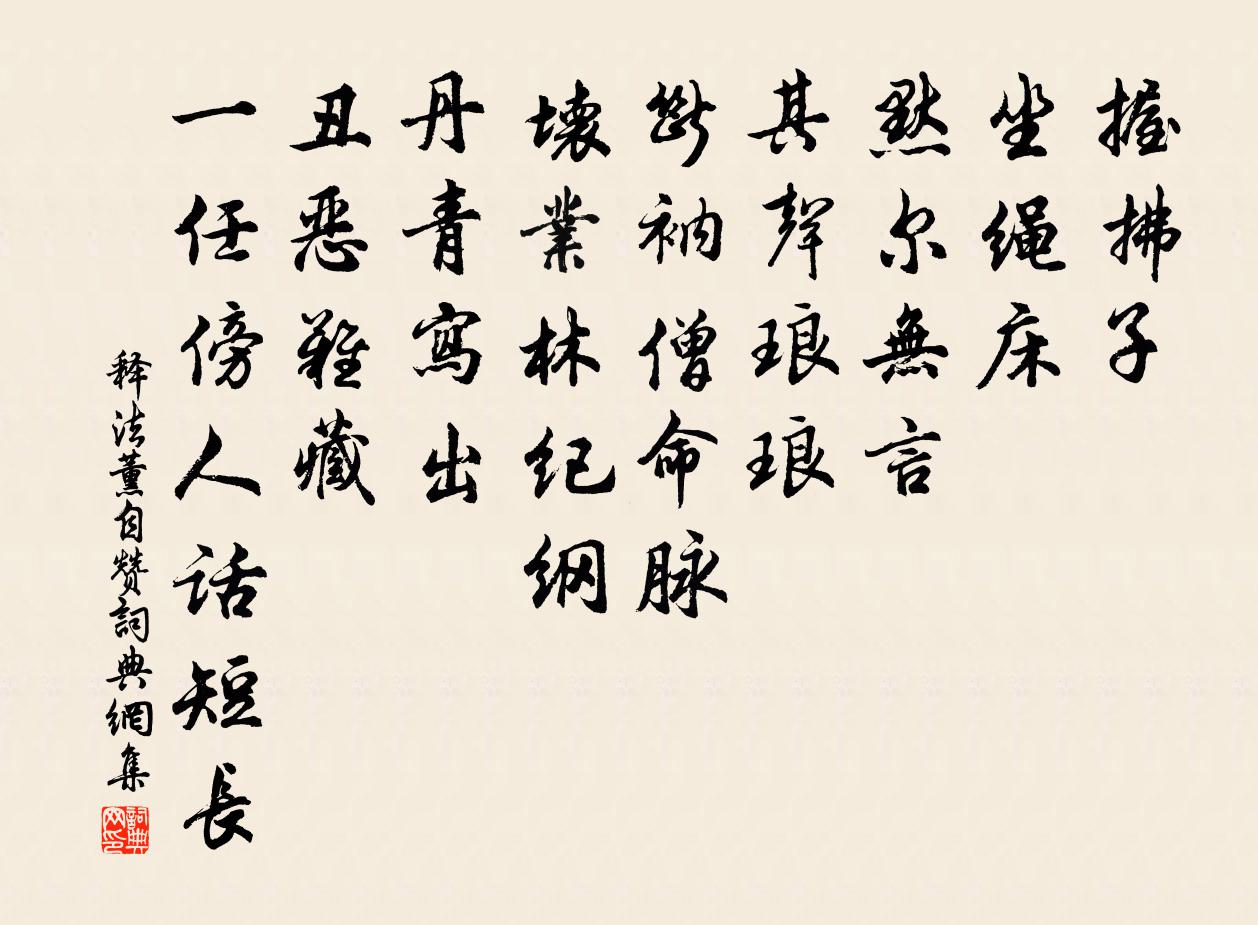 握拂子
坐绳床
默尔無言
其聲琅琅
斷衲僧命脉
壞業林纪纲
丹青寫出
丑恶難藏
一任傍人話短長
释法薰自赞詞典網集
詞典网印